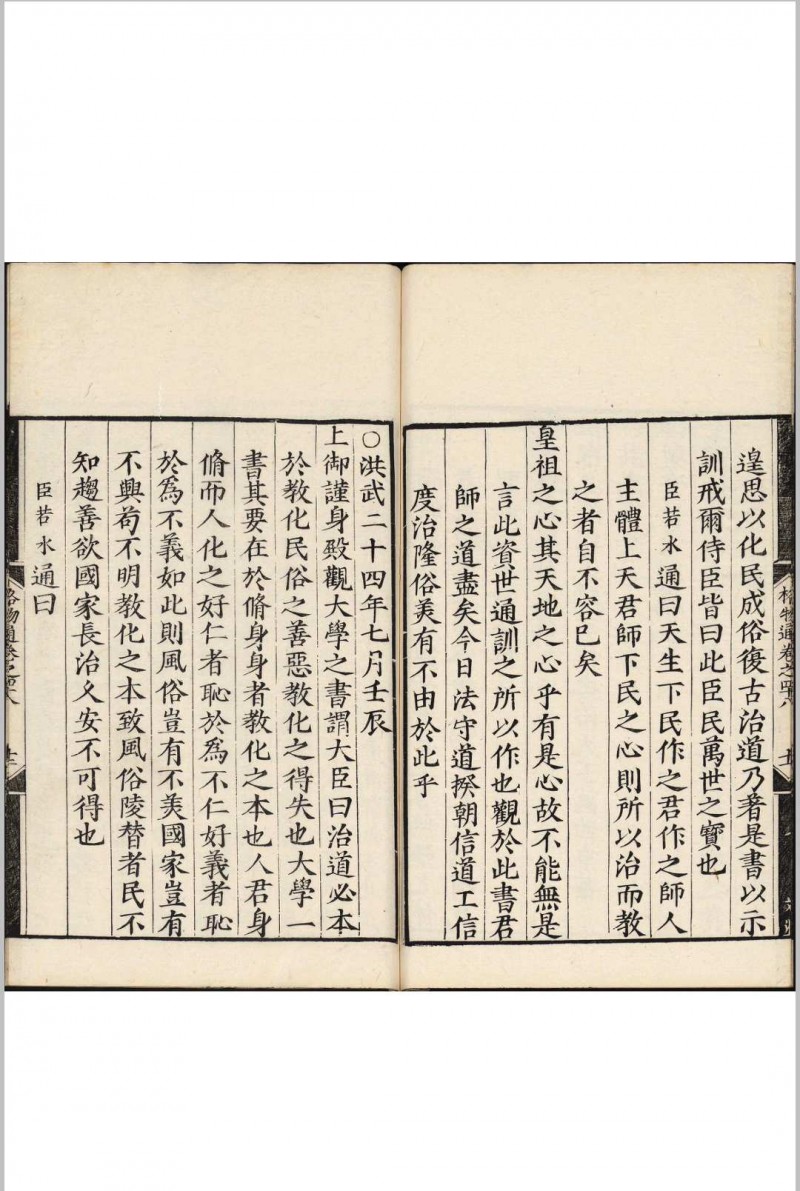 遑思以化民成俗復古治道乃著是書以示
訓戒爾侍臣皆曰此臣民萬世之寶也
臣若水通曰天生下民作之君作之師人
主體上天君師下民之心則所以治而教
之者自不容已矣
皇祖之心其天地之心乎有是心故不能無是
言此資世通訓之所以作也觀於此書君
師之道盡矣今日法守道揆朝信道工信
度治隆俗美有不由於此乎
○洪武二十四年七月壬辰
上御謹身殿觀大學之書謂大臣曰治道必本
於教化民俗之善惡教化之得失也大學一
書其要在於脩身身者教化之本也人君身
脩而人化之好仁者恥於為不仁好義者恥
於為不義如此則風俗豈有不美國家豈有
不興苟不明教化之本致風俗陵替者民不
知趨善欲國家長治久安不可得也
臣若水通曰
格物通卷之